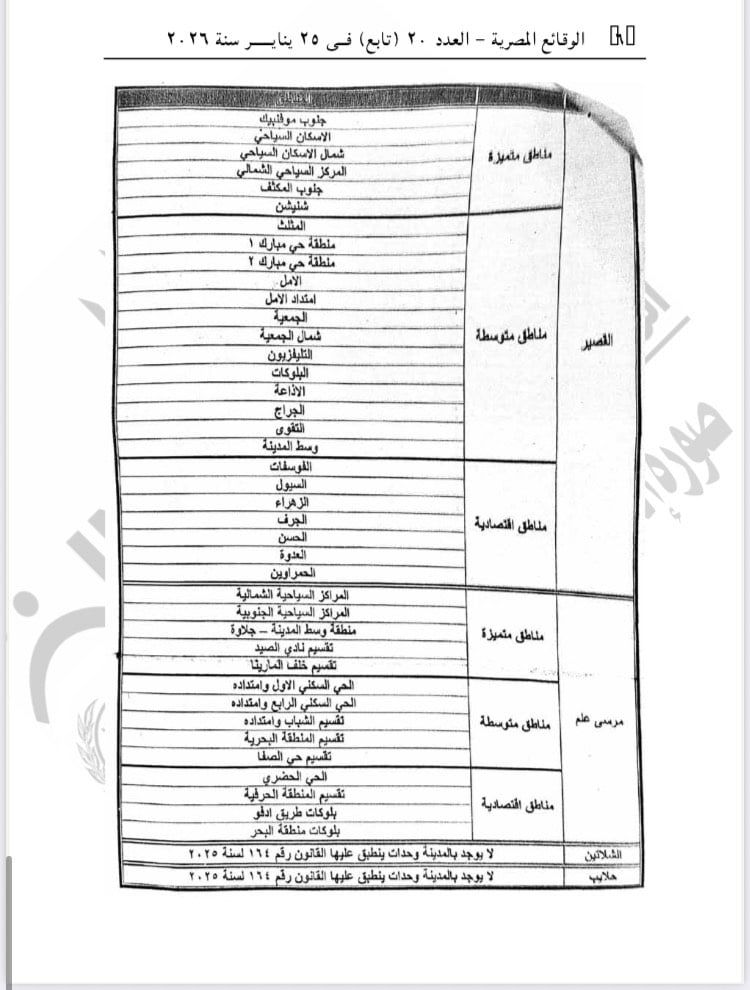 الوقائع المصرية – العدد ٢٠ (تابع) فى ٢٥ ينايـــر سنة ٢٠٢٦
القصير
مناطق متميزة
جنوب موفنبيك
الاسكان السياحي
شمال الاسكان السياحي
المركز السياحي الشمالي
جنوب المكثف
شنيشن
مناطق متوسطة
المثلث
منطقة حي مبارك ١
منطقة حي مبارك ٢
الامل
امتداد الامل
الجمعية
شمال الجمعية
التليفزيون
البلوكات
الاذاعة
الجراج
التقوى
وسط المدينة
مناطق اقتصادية
الفوسفات
السيول
الزهراء
الجرف
الحسن
العدوة
الحمراوين
مرسى علم
مناطق متميزة
المراكز السياحية الشمالية
المراكز السياحية الجنوبية
منطقة وسط المدينة – جلاوة
تقسيم نادي الصيد
تقسيم خلف المارينا
مناطق متوسطة
الحي السكني الاول وامتداده
الحي السكني الرابع وامتداده
تقسيم الشباب وامتداده
تقسيم المنطقة البحرية
تقسيم حي الصفا
مناطق اقتصادية
الحي الحضري
تقسيم المنطقة الحرفية
بلوكات طريق ادفو
بلوكات منطقة البحر
الشلاتين
لا يوجد بالمدينة وحدات ينطبق عليها القانون رقم ١٦٤ لسنة ٢٠٢٥
حلايب
لا يوجد بالمدينة وحدات ينطبق عليها القانون رقم ١٦٤ لسنة ٢٠٢٥
صورة